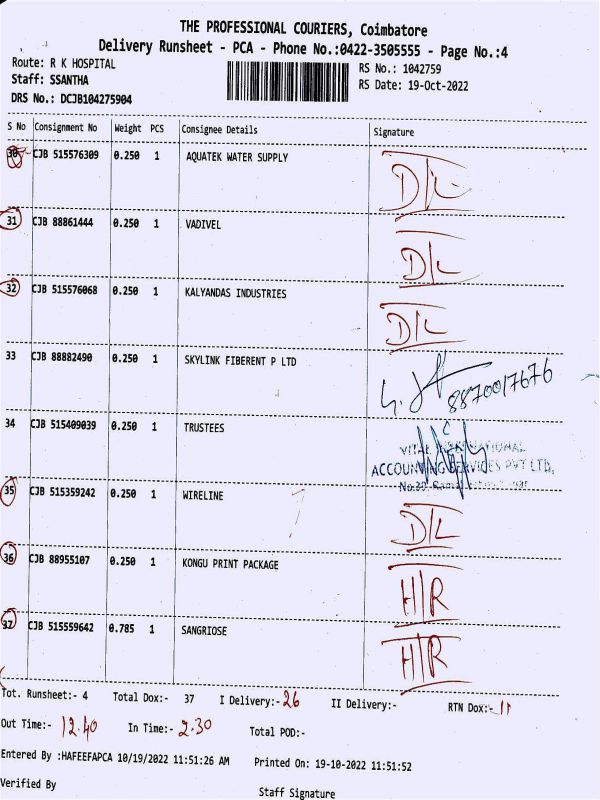 THE PROFESSIONAL COURIERS, Coimbatore
Delivery Runsheet - PCA - Phone No.:0422-3505555 - Page No.:4
Route: R K HOSPITAL
RS No.: 1042759
Staff: SSANTHA
RS Date: 19-Oct-2022
DRS No.: DCJB104275904
S No Consignment No Weight PCS Consignee Details Signature
30 CJB 515576309 0.250 1 AQUATEK WATER SUPPLY D/L
31 CJB 88861444 0.250 1 VADIVEL D/L
32 CJB 515576068 0.250 1 KALYANDAS INDUSTRIES D/L
33 CJB 88882490 0.250 1 SKYLINK FIBERENT P LTD 8870017676
34 CJB 515409039 0.250 1 TRUSTEES
VITAL INTERNATIONAL
ACCOUNTING SERVICES PVT LTD,
35 CJB 515359242 0.250 1 WIRELINE D/L
36 CJB 88955107 0.250 1 KONGU PRINT PACKAGE H/R
37 CJB 515559642 0.785 1 SANGRIOSE H/R
Tot. Runsheet:- 4 Total Dox:- 37 I Delivery:- 26 II Delivery:- RTN Dox:- 11
Out Time:- 12.40 In Time:- 2.30 Total POD:-
Entered By :HAFEEFAPCA 10/19/2022 11:51:26 AM Printed On: 19-10-2022 11:51:52
Verified By Staff Signature